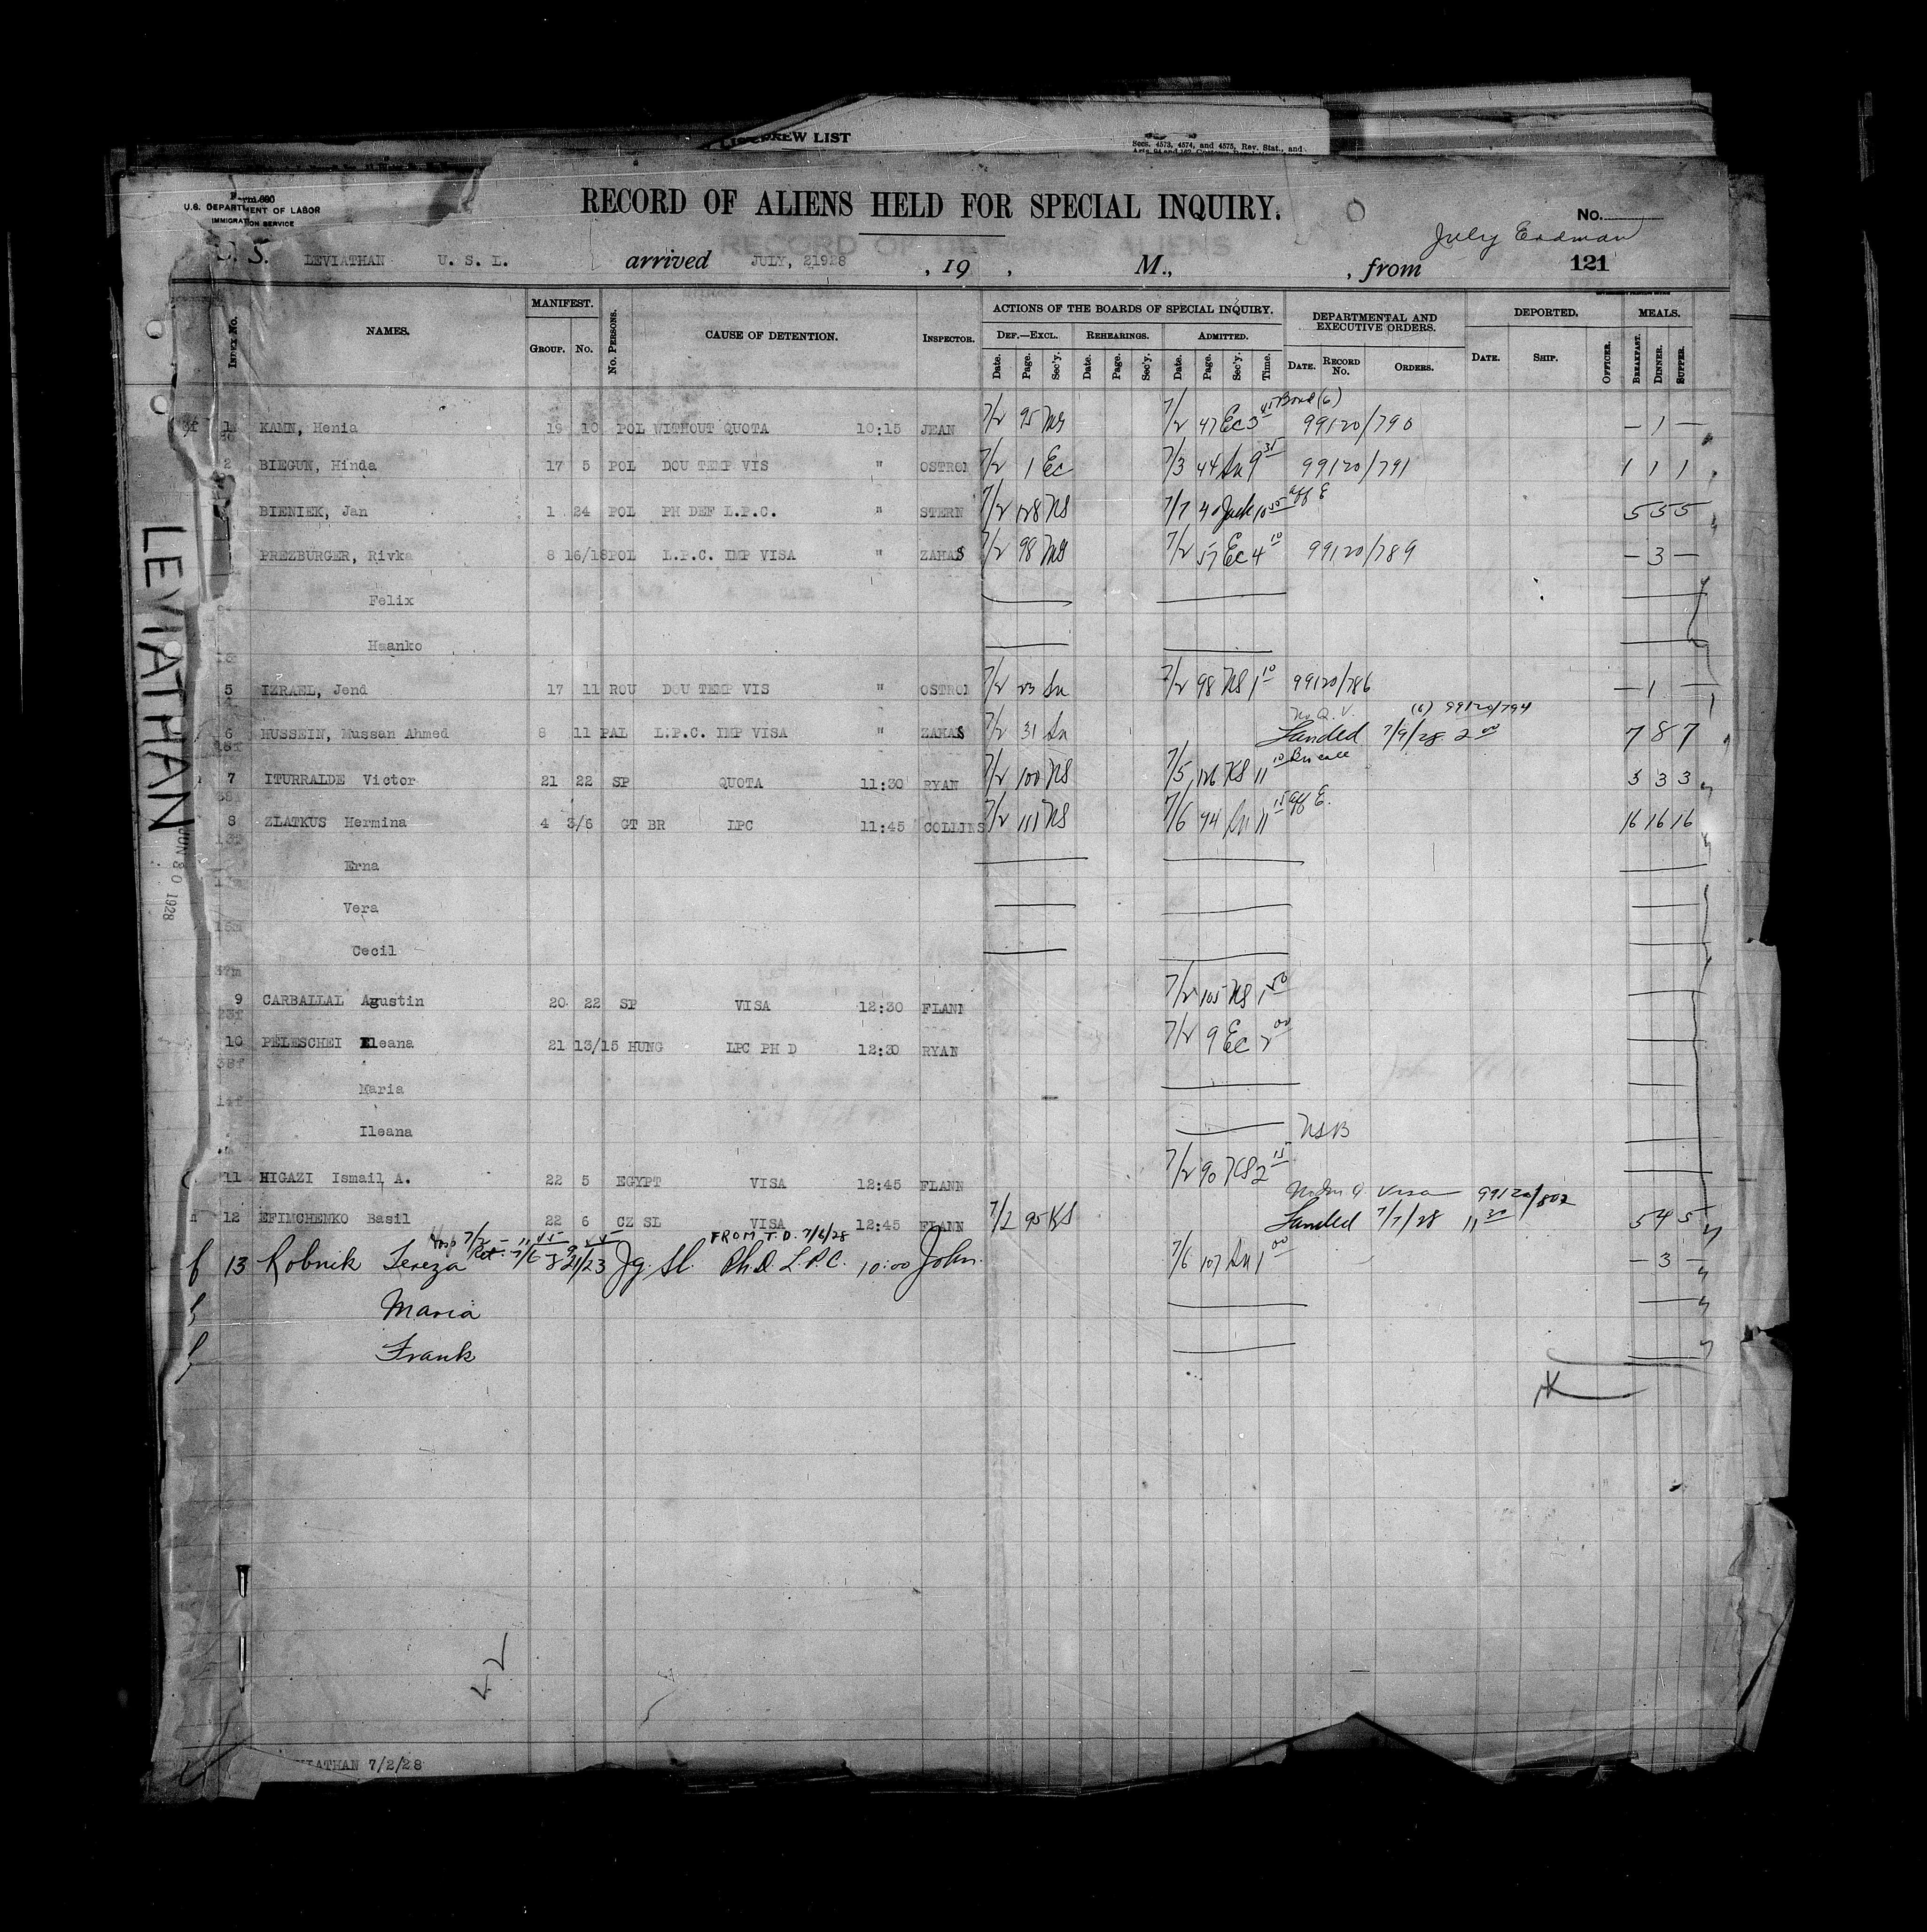 CREW LIST
Secs. 4573, 4574, and 4575, Rev. Stat., and
U.S. DEPARTMENT OF LABOR
IMMIGRATION SERVICE
RECORD OF ALIENS HELD FOR SPECIAL INQUIRY.
No.
S. LEVIATHAN U. S. L. arrived JULY, 21928 , 19 , M., , from 121
INDEX NO. NAMES. MANIFEST. GROUP. NO. NO. PERSONS. CAUSE OF DETENTION. INSPECTOR. ACTIONS OF THE BOARDS OF SPECIAL INQUIRY. DEPARTMENTAL AND EXECUTIVE ORDERS. DEPORTED. MEALS.
DEF.—EXCL. REHEARINGS. ADMITTED.
Date. Page. Sec'y. Date. Page. Sec'y. Date. Page. Sec'y. Time. DATE. RECORD NO. ORDERS. DATE. SHIP. OFFICER. BREAKFAST. DINNER. SUPPER.
1 KAMN, Henia 19 10 POL WITHOUT QUOTA 10:15 JEAN 7/2 95 7/2 47 Ec 3 45 Bond (6) 99120/790 — 1 —
2 BIEGUN, Hinda 17 5 POL DOU TEMP VIS " OSTROI 7/2 1 Ec 7/3 44 9 35 99120/791 1 1 1
BIENIEK, Jan 1 24 POL PH DEF L.P.C. " STERN 7/2 128 NS 7/7 40 10 aff E 5 5 5
PREZBURGER, Rivka 8 16/18 POL L.P.C. IMP VISA " ZAHAS 7/2 98 7/2 57 Ec 4 10 99120/789 — 3 —
Felix
Haanko
5 IZRAEL, Jend 17 11 ROU DOU TEMP VIS " OSTROI 7/2 23 7/2 98 NS 1 10 99120/786 — 1 —
No Q. V. (6) 99120/794
6 HUSSEIN, Mussan Ahmed 8 11 PAL L.P.C. IMP VISA " ZAHAS 7/2 31 Landed 7/9/28 2 00 7 8 7
7 ITURRALDE Victor 21 22 SP QUOTA 11:30 RYAN 7/2 100 NS 7/5 126 KS 11 10 3 3 3
8 ZLATKUS Hermina 4 3/6 GT BR LPC 11:45 COLLINS 7/2 111 NS 7/6 94 11 15 aff E. 16 16 16
Erna
Vera
Cecil
9 CARBALLAL Agustin 20 22 SP VISA 12:30 FLANN 7/2 105 NS 1 50
10 PELESCHEI Eleana 21 13/15 HUNG LPC PH D 12:30 RYAN 7/2 9 Ec 2 00
Maria
Ileana
11 HIGAZI Ismail A. 22 5 EGYPT VISA 12:45 FLANN 7/2 90 KS 2 15
Visa 99120/802
12 EFIMCHENKO Basil 22 6 CZ SL VISA 12:45 FLANN 7/2 95 KS Landed 7/7/28 11 30 5 4 5
Hosp 7/2 FROM T.D. 7/6/28
13 Robnik Tereza 21/23 Jg. Sl. Ph.D. L.P.C. 10:00 John. 7/6 107 1 00 — 3 —
Maria
Frank
LEVIATHAN
JUN 30 1928
IATHAN 7/2/28